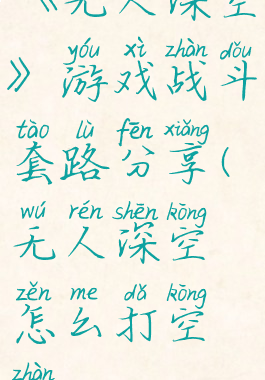 《无人深空
yóu xì zhàn dǒu
》游戏战斗
tào lù fēn xiǎng
套路分享(
wú rén shēn kōng
无人深空
zěn me dǎ kōng
怎么打空
zhàn